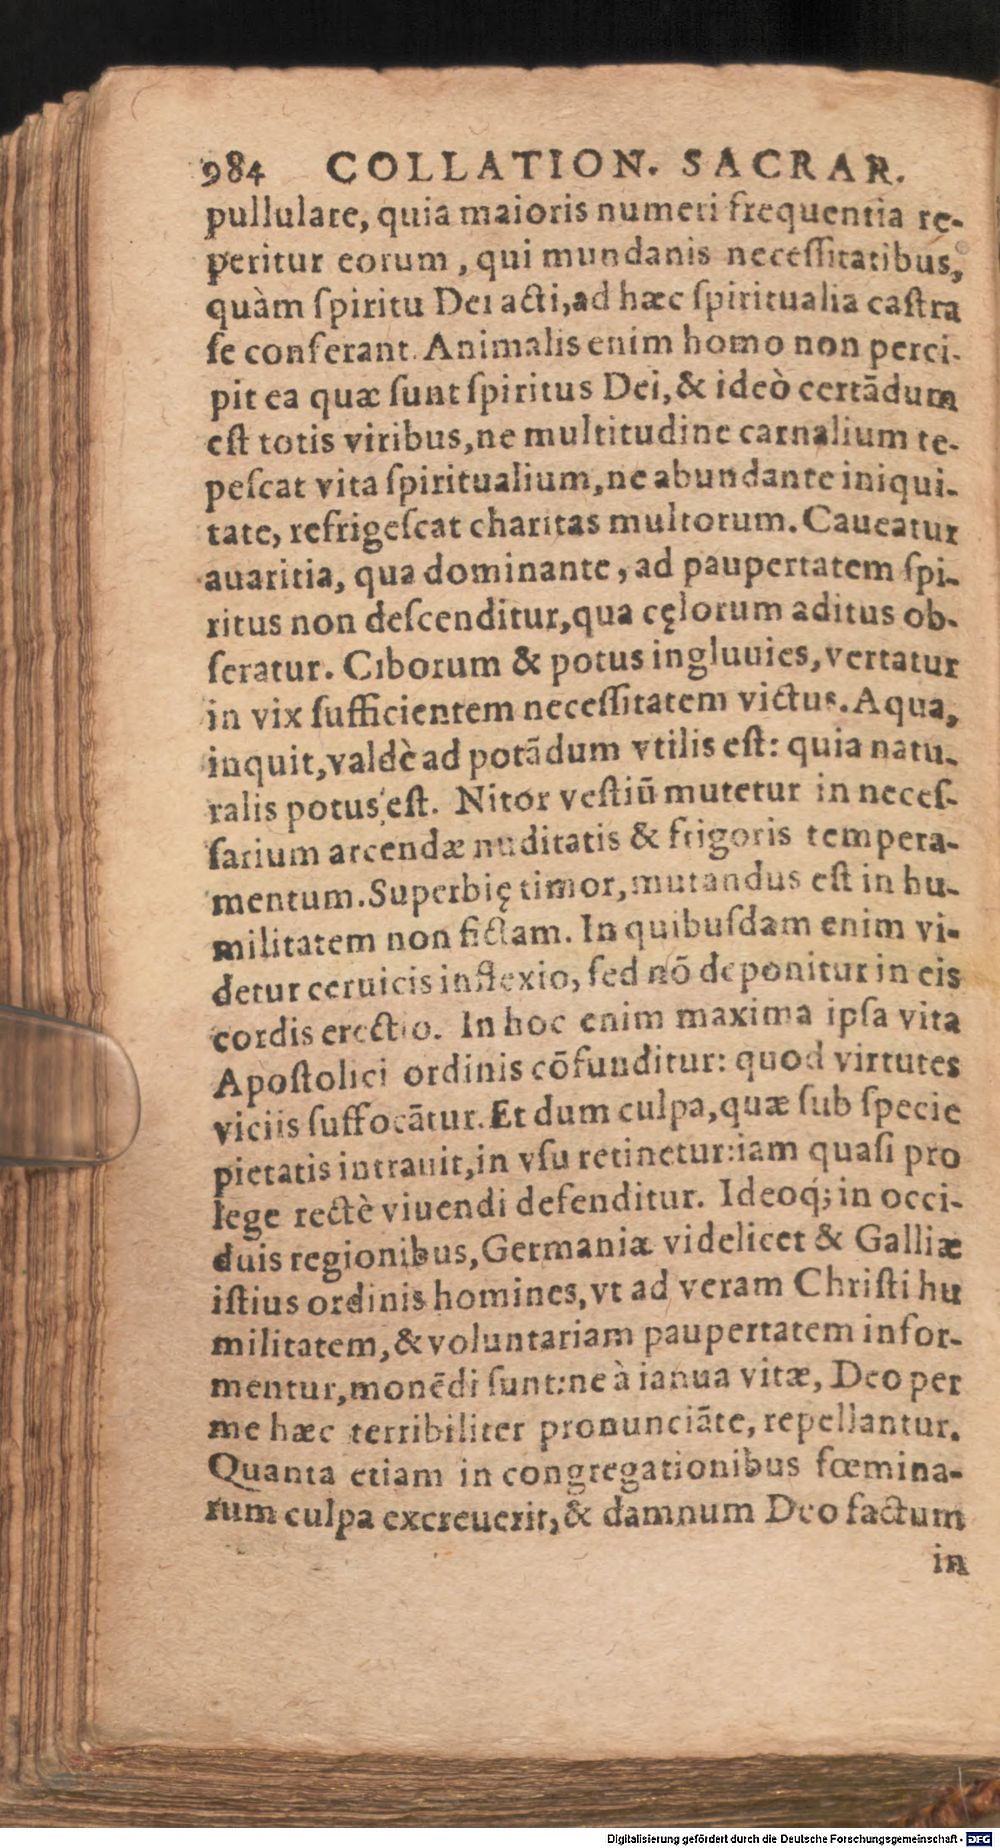 984 COLLATION. SACRAR.
pullulare, quia maioris numeri frequentia re-
peritur eorum, qui mundanis neceſſitatibus,
quàm ſpiritu Dei acti, ad hæc ſpiritualia caſtra
ſe conferant. Animalis enim homo non perci-
pit ea quæ ſunt ſpiritus Dei, & ideò certādum
eſt totis viribus, ne multitudine carnalium te-
peſcat vita ſpiritualium, ne abundante iniqui-
tate, refrigeſcat charitas multorum. Caueatur
auaritia, qua dominante, ad paupertatem ſpi-
ritus non deſcenditur, qua cęlorum aditus ob-
ſeratur. Ciborum & potus ingluuies, vertatur
in vix ſufficientem neceſſitatem victus. Aqua,
inquit, valdè ad potādum vtilis eſt: quia natu-
ralis potus eſt. Nitor veſtiū mutetur in neceſ-
ſarium arcendæ nuditatis & frigoris tempera-
mentum. Superbię timor, mutandus eſt in hu-
militatem non fictam. In quibuſdam enim vi-
detur ceruicis inflexio, ſed nō deponitur in eis
cordis erectio. In hoc enim maxima ipſa vita
Apoſtolici ordinis cōfunditur: quod virtutes
viciis ſuffocātur. Et dum culpa, quæ ſub ſpecie
pietatis intrauit, in vſu retinetur: iam quaſi pro
lege rectè viuendi defenditur. Ideoq́; in occi-
duis regionibus, Germaniæ videlicet & Galliæ
iſtius ordinis homines, vt ad veram Chriſti hu
militatem, & voluntariam paupertatem infor-
mentur, monēdi ſunt: ne à ianua vitæ, Deo per
me hæc terribiliter pronunciāte, repellantur.
Quanta etiam in congregationibus fœmina-
rum culpa excreuerit, & damnum Deo factum
in
Digitalisierung gefördert durch die Deutsche Forschungsgemeinschaft - DFG